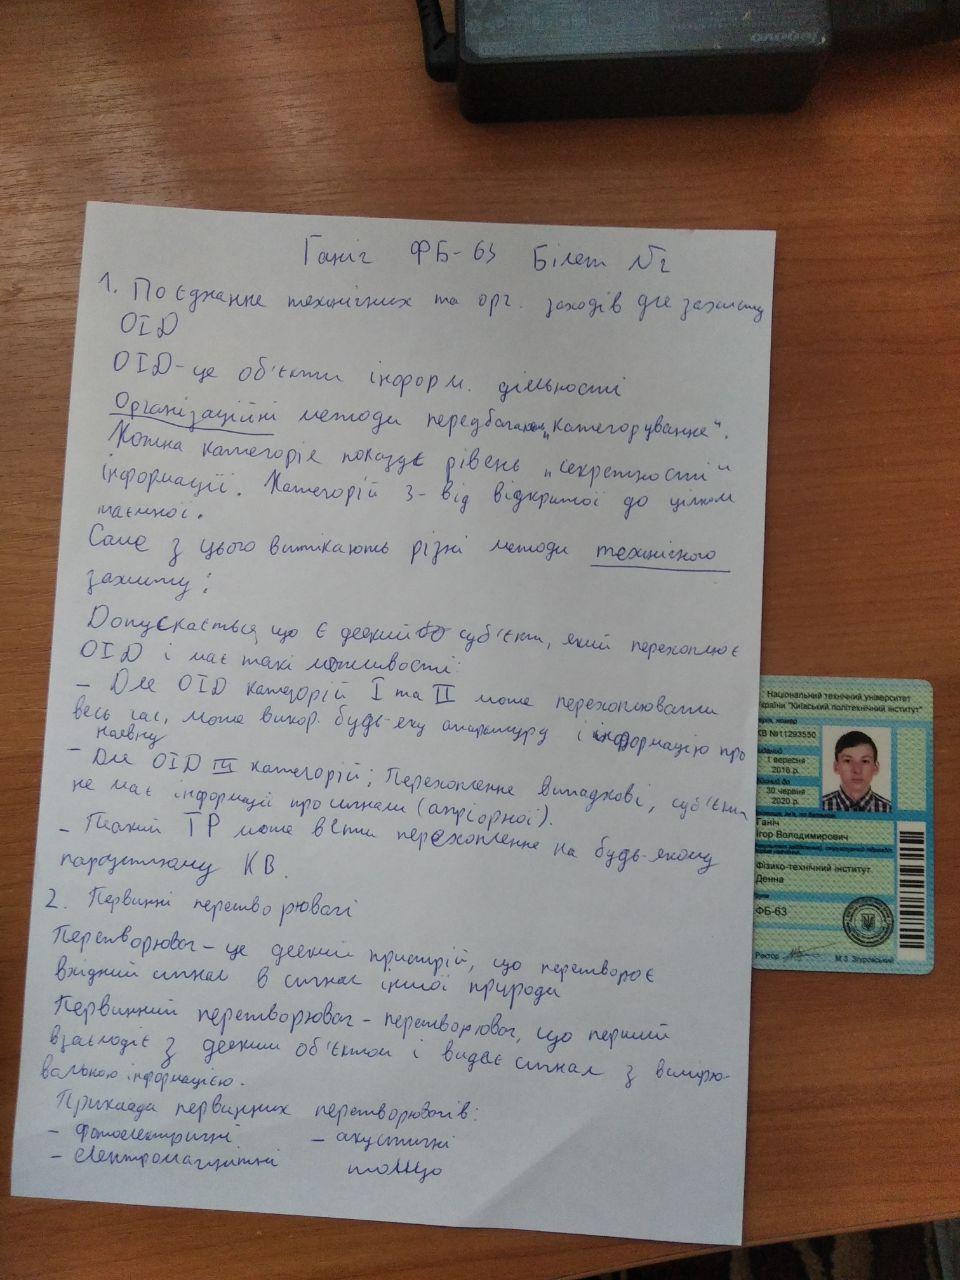 lenovo
Ганіч ФБ-63 Білет №2
1. Поєднання технічних та орг. заходів для захисту
ОІД
ОІД - це об'єкти інформ. діяльності
Організаційні методи передбачають "категорування".
Кожна категорія показує рівень "секретності"
інформації. Категорій 3 - від відкритої до цілком
таємної.
Саме з цього витікають різні методи технічного
захисту:
Допускається, що є деякий суб'єкт, який перехоплює
ОІД і має такі можливості:
- Для ОІД категорій I та II може перехоплювати
весь час, може викор. будь-яку апаратуру і інформацію про
наявну
- Для ОІД III категорій; Перехоплення випадкові, суб'єкт
не має інформації про сигнали (апріорної).
- Пеакий ТР може вести перехоплення на будь-якому
паразитному КВ.
2. Первинні перетворювачі
Перетворювач - це деякий пристрій, що перетворює
вхідний сигнал в сигнал іншої природи
Первинний перетворювач - перетворювач, що перший
взаємодіє з деяким об'єктом і видає сигнал з вимірю-
вальною інформацією.
Приклади первинних перетворювачів:
- фотоелектричні - акустичні
- електромагнітні тощо
Національний технічний університет
України "Київський політехнічний інститут"
КВ №11293550
1 вересня
2016 р.
30 червня
2020 р.
Ганіч
Ігор Володимирович
Фізико-технічний інститут
Денна
ФБ-63
Ректор М.З. Згуровський